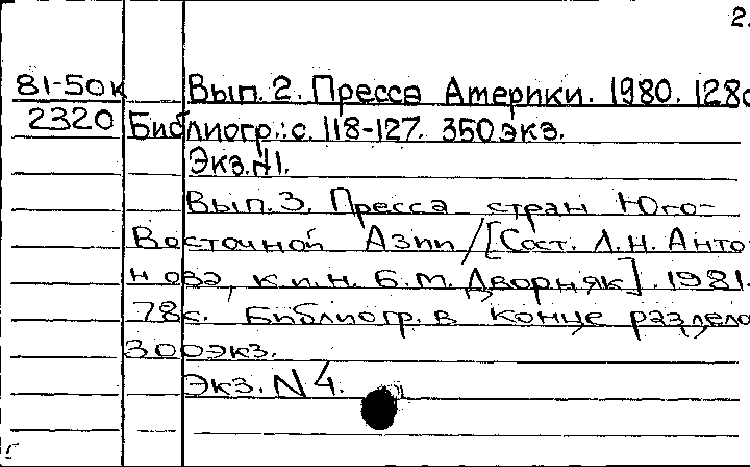 2.
81-50к Вып. 2. Пресса Америки. 1980. 128с
2320 Библиогр.: с. 118-127. 350 экз.
Экз. N1.
Вып. 3. Пресса стран Юго-
Восточной Азии / [Сост. Л. Н. Анто
нова, к.и.н. Б. М. Дворняк]. 1981.
78с. Библиогр. в конце раздела
300 экз.
Экз. N 4.